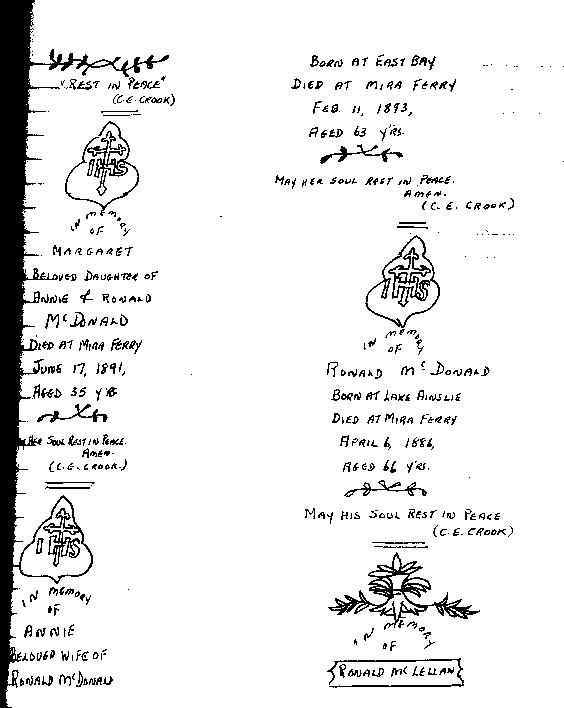 "REST IN PEACE"
(C.E. CROOK)
IHS
IN MEMORY
OF
MARGARET
BELOVED DAUGHTER OF
ANNIE & RONALD
McDONALD
DIED AT MIRA FERRY
JUNE 17, 1891,
AGED 35 YRS
HER SOUL REST IN PEACE.
AMEN.
(C.E. CROOK.)
IHS
IN MEMORY
OF
ANNIE
BELOVED WIFE OF
RONALD McDONALD
BORN AT EAST BAY
DIED AT MIRA FERRY
FEB. 11, 1893,
AGED 63 YRS.
MAY HER SOUL REST IN PEACE.
AMEN.
(C. E. CROOK)
IHS
IN MEMORY
OF
RONALD McDONALD
BORN AT LAKE AINSLIE
DIED AT MIRA FERRY
APRIL 6, 1886,
AGED 66 YRS.
MAY HIS SOUL REST IN PEACE
(C.E. CROOK)
IN MEMORY
OF
RONALD McLELLAN